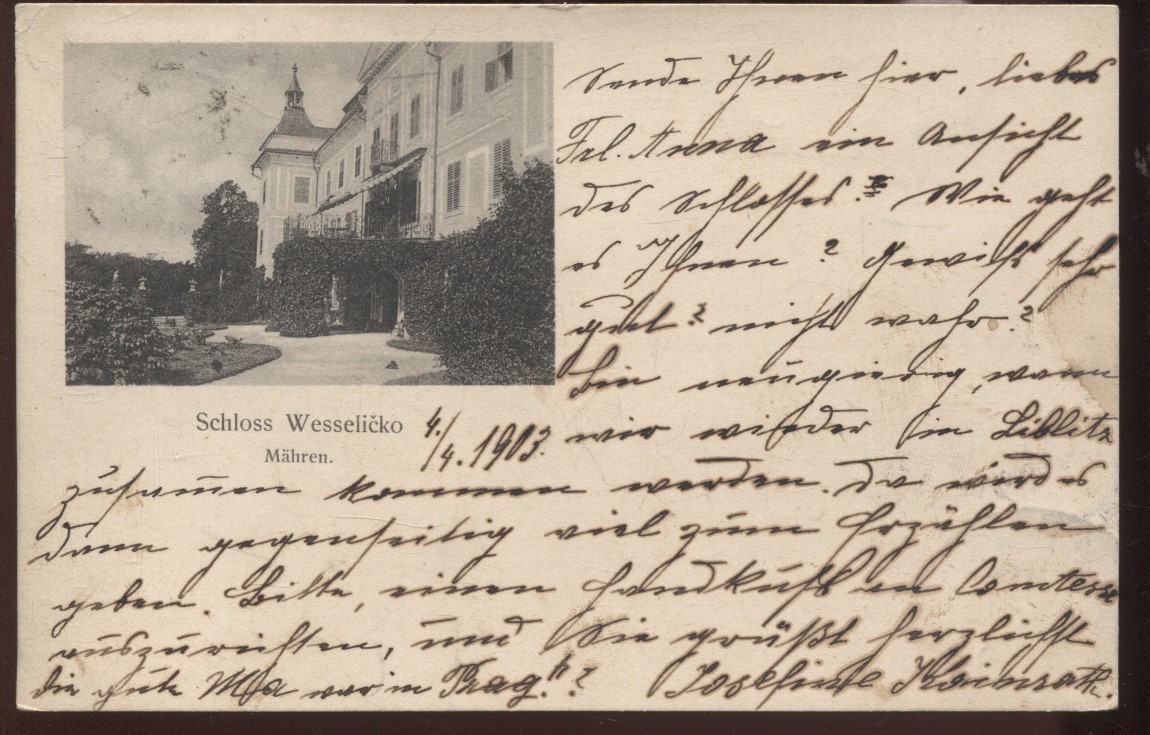 Sende Ihnen hier, liebes
Frl. Anna ein Ansicht
des Schlosses. Wie geht
es Ihnen? Gewiß sehr
gut? nicht wahr?
Bin neugierig, wann
wir wieder in Liblitz
zusammen kommen werden. Da wird es
dann gegenseitig viel zum Erzählen
geben. Bitte, einen Handkuß an Comtesse
auszurichten, und Sie grüßt herzlichst
die gute Ma war in Prag!!? Josefine
Schloss Wesseličko
Mähren.
4./4. 1903.